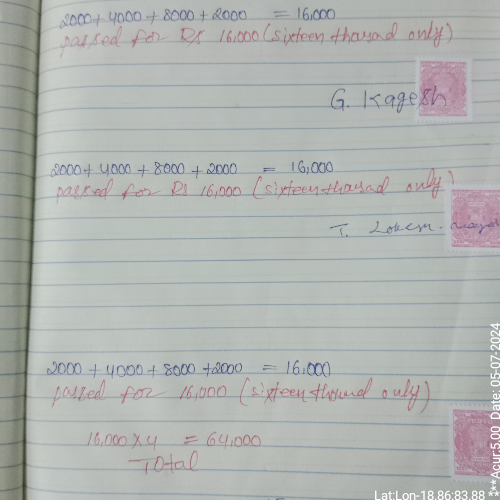 2000+ 4000 + 8000 + 2000 = 16,000
passed for Rs 16,000 (sixteen thousad only)
G. Kagesh
2000+ 4000 + 8000 + 2000 = 16,000
passed for Rs 16,000 (sixteen thousad only)
T.
2000 + 4000 + 8000 +2000 = 16,000
passed for 16,000 (sixteen only)
16,000 x 4 = 64,000
Total
Lat:Lon-18.86:83.88
*** Acur:5.00 Date: 05-07-2024